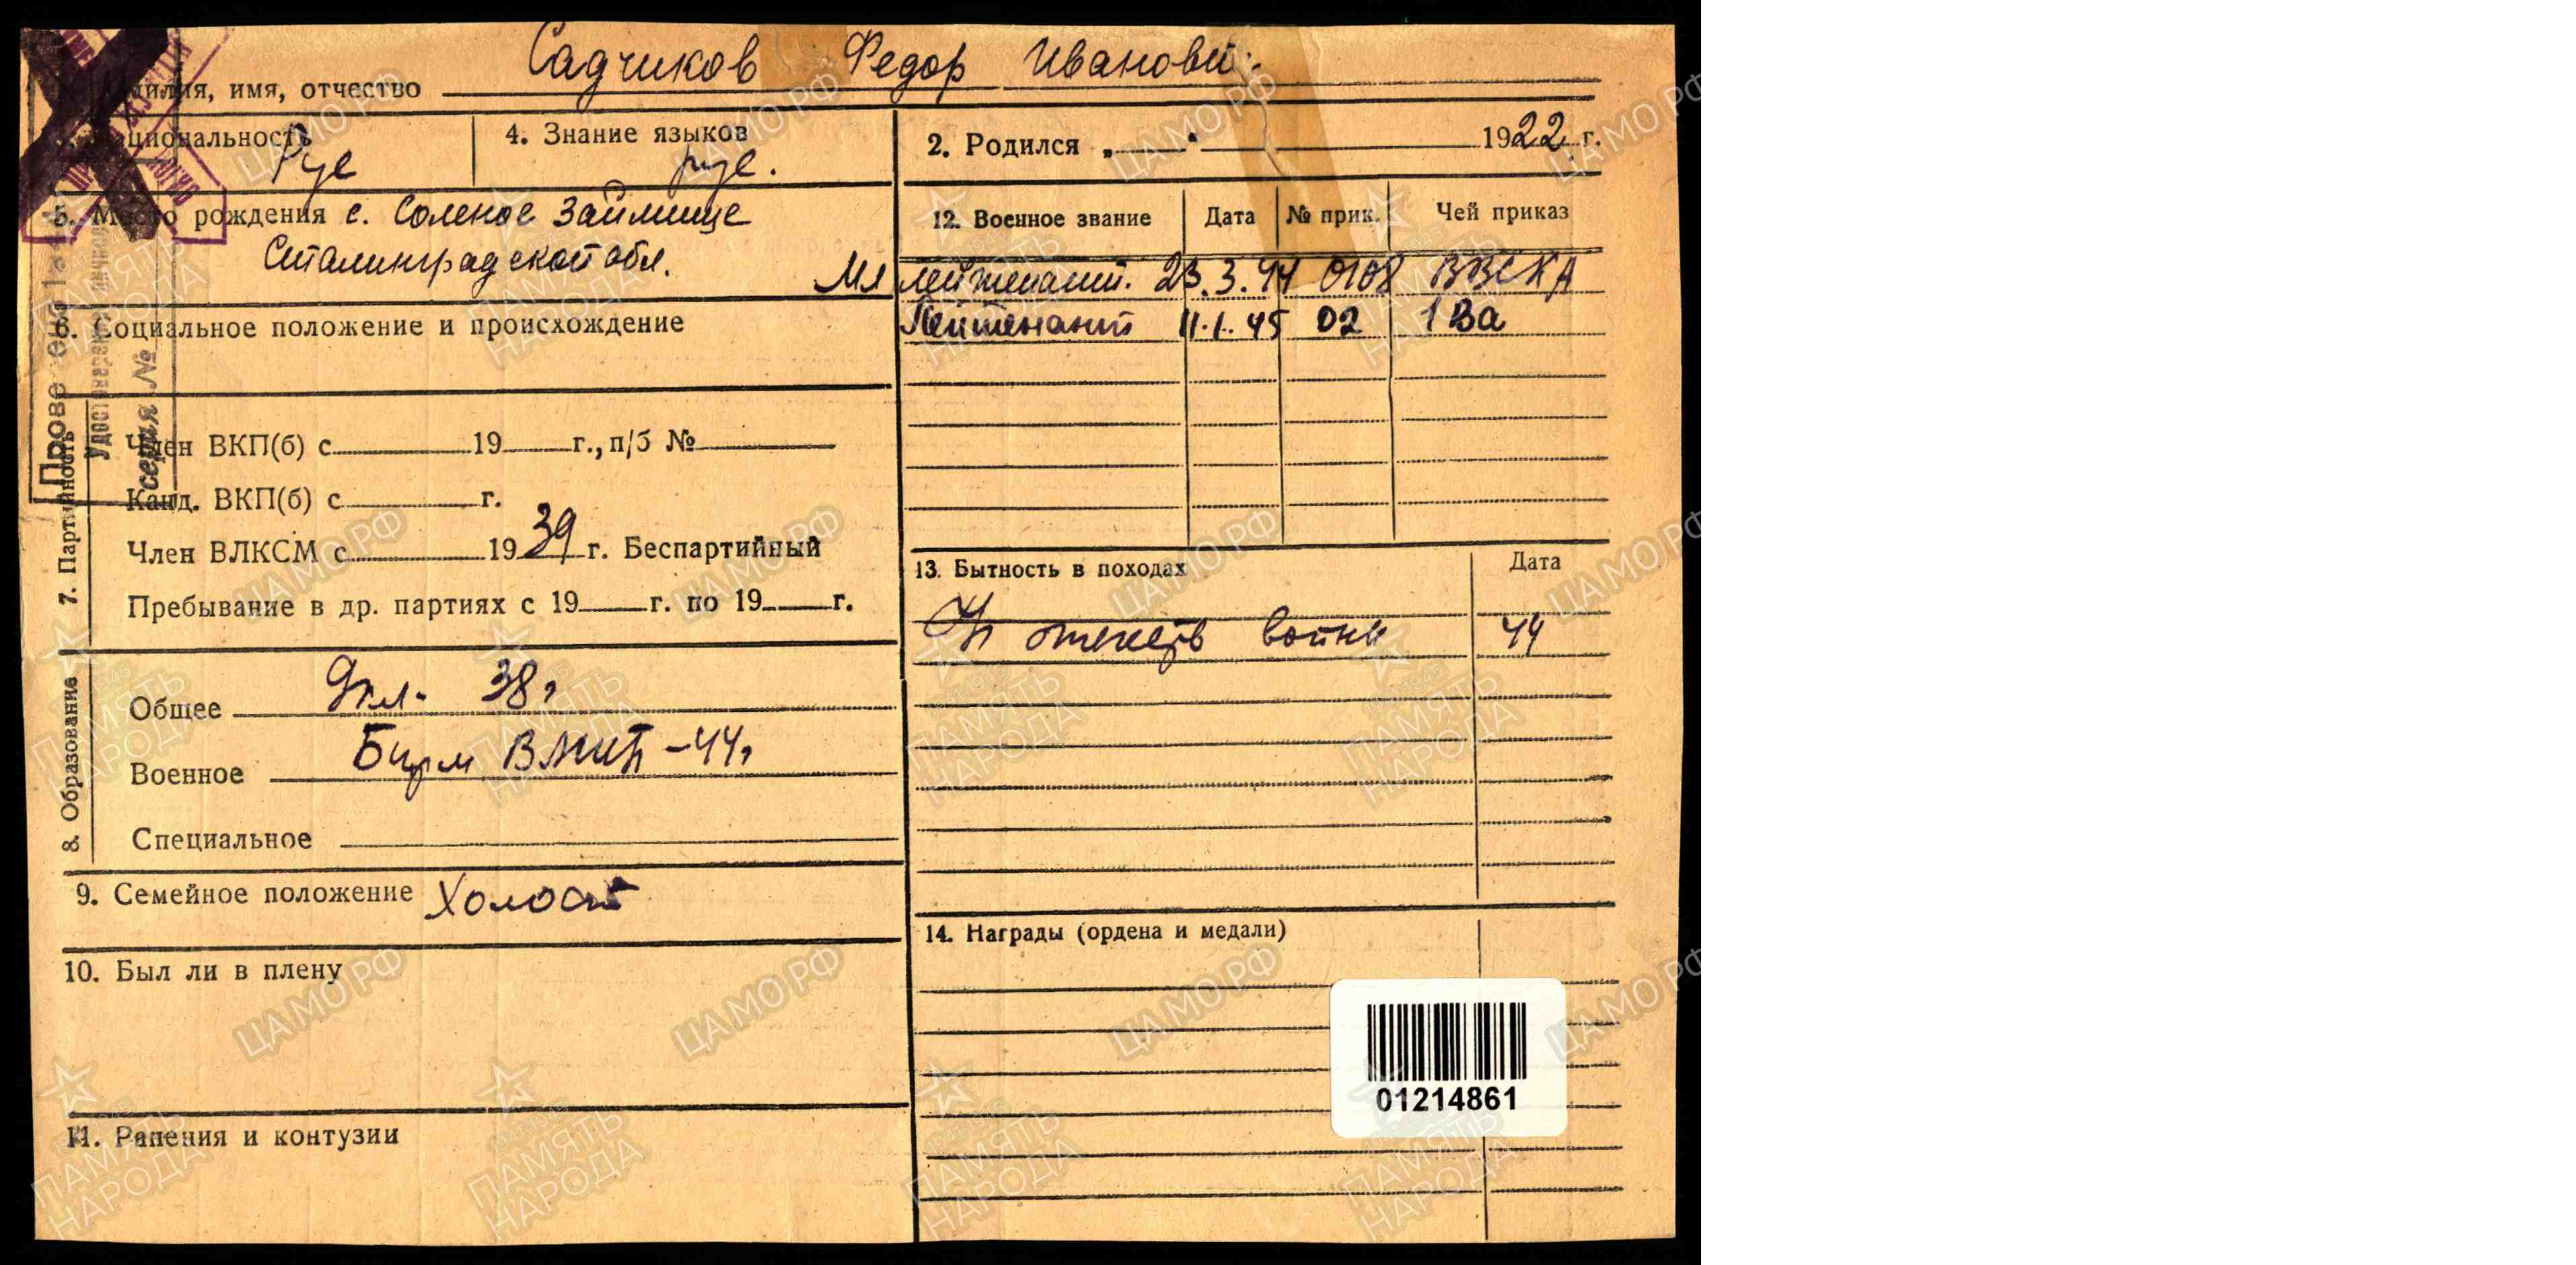 Садчиков Федор Иванович
милия, имя, отчество
циональность Рус
4. Знание языков рус.
2. Родился „ “ 1922 г.
5. Место рождения с. Соленое Займище
Сталинградской обл.
6. Социальное положение и происхождение
12. Военное звание Дата № прик. Чей приказ
Мл лейтенант. 23.3.44 0108 ВВСКА
Лейтенант 11.1.45 02 1 Ва
7. Партийность
Член ВКП(б) с 19 г., п/б №
Канд. ВКП(б) с г.
Член ВЛКСМ с 1939 г. Беспартийный
Пребывание в др. партиях с 19 г. по 19 г.
8. Образование
Общее 9кл. 38г
Военное Бирм ВАШП -44г
Специальное
9. Семейное положение Холост
10. Был ли в плену
11. Ранения и контузии
13. Бытность в походах Дата
отечеств войны 44
14. Награды (ордена и медали)
01214861
Удостоверение личности
серия №
ЦАМО РФ
ПАМЯТЬ
НАРОДА